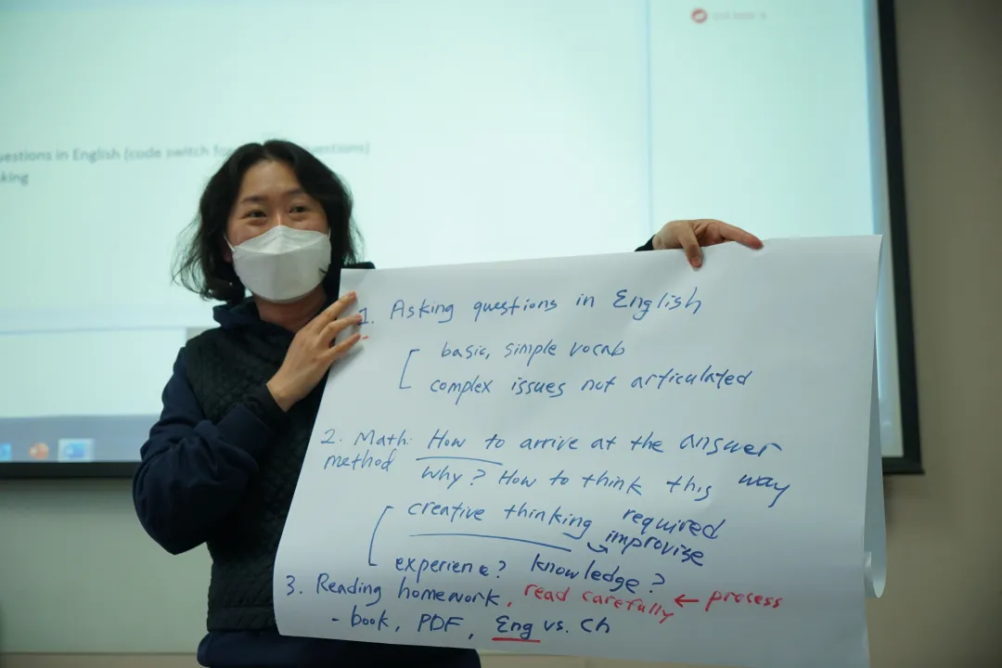 uestions in English (code switch for
uestions)
king
1. Asking questions in English
basic, simple vocab
complex issues not articulated
2. Math: How to arrive at the answer
method why? How to think this way
creative thinking required
improvize
experience? knowledge?
3. Reading homework, read carefully ← process
- book, PDF, Eng vs. Ch